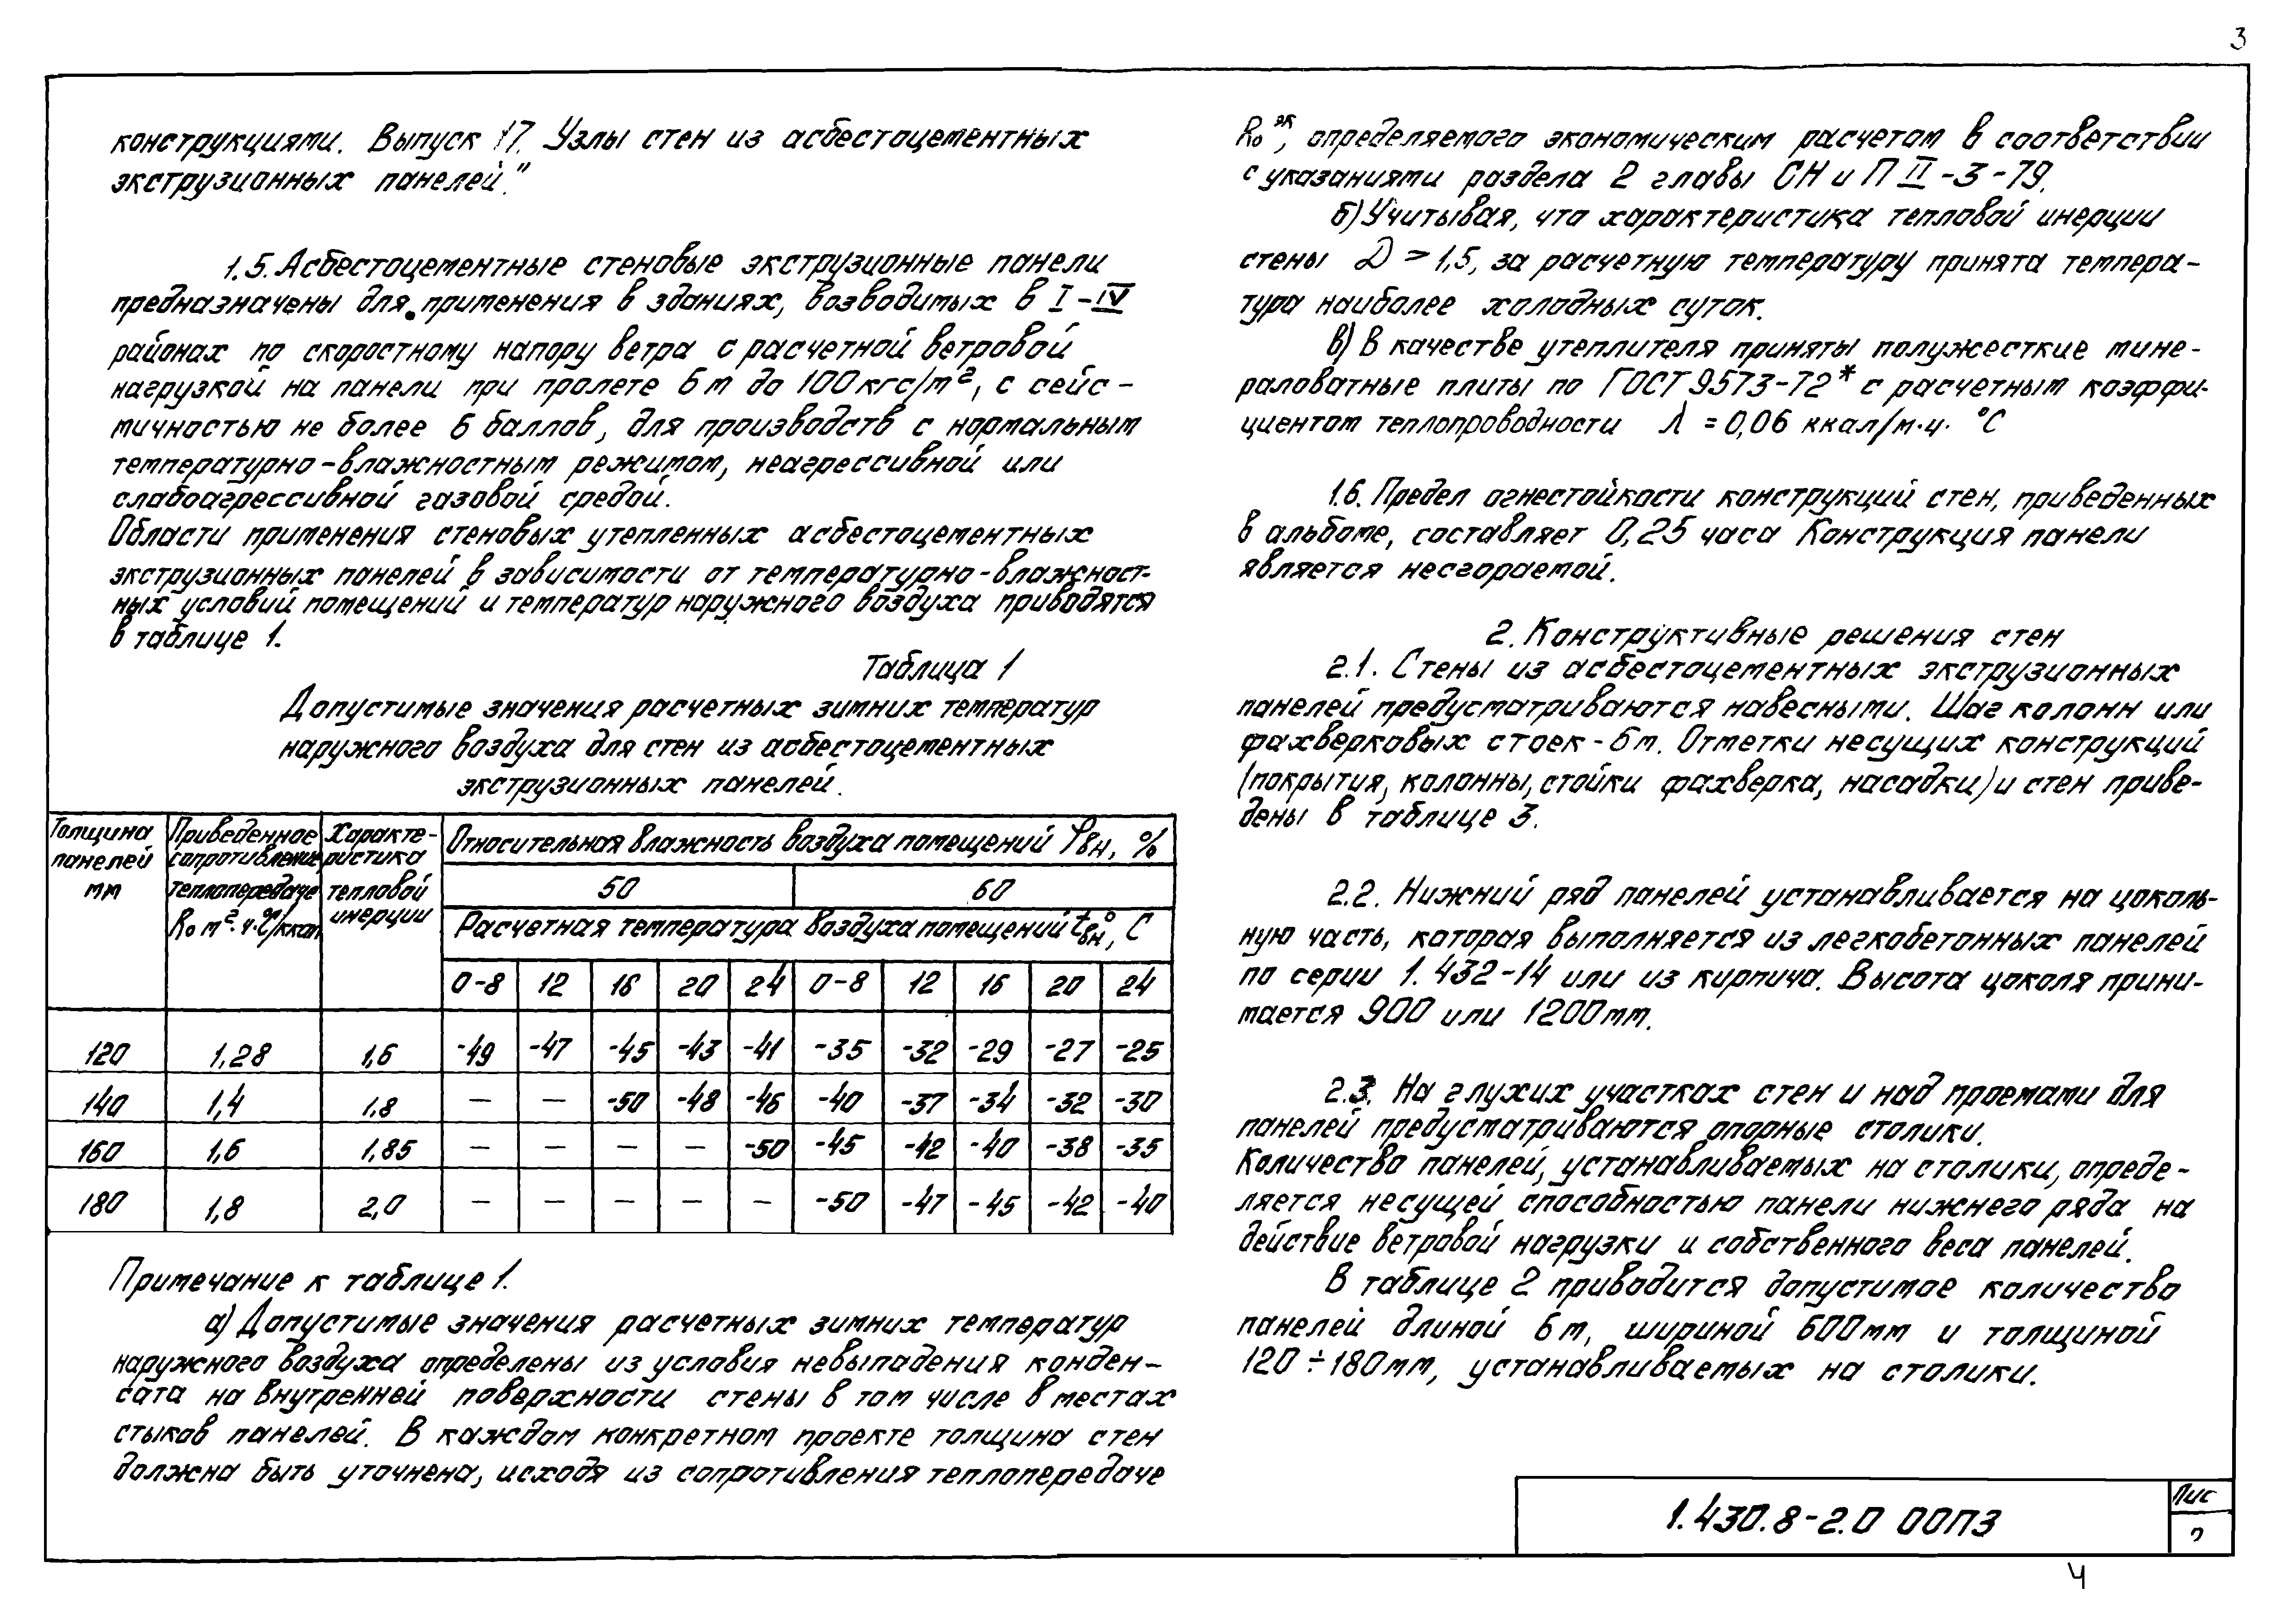 3
конструкциями. Выпуск 17. Узлы стен из асбестоцементных
экструзионных панелей."
1.5. Асбестоцементные стеновые экструзионные панели
предназначены для применения в зданиях, возводимых в I-IV
районах по скоростному напору ветра с расчетной ветровой
нагрузкой на панели при пролете 6м до 100 кгс/м², с сейс-
мичностью не более 6 баллов, для производств с нормальным
температурно-влажностным режимом, неагрессивной или
слабоагрессивной газовой средой.
Области применения стеновых утепленных асбестоцементных
экструзионных панелей в зависимости от температурно-влажност-
ных условий помещений и температур наружного воздуха приводятся
в таблице 1.
Таблица 1
Допустимые значения расчетных зимних температур
наружного воздуха для стен из асбестоцементных
экструзионных панелей.
Толщина панелей мм | Приведенное сопротивление теплопередаче R₀ м²·ч·°С/ккал | Характе-ристика тепловой инерции | Относительная влажность воздуха помещений φвн, %
50 | 60
Расчетная температура воздуха помещений t°вн, С
0-8 | 12 | 16 | 20 | 24 | 0-8 | 12 | 16 | 20 | 24
120 | 1,28 | 1,6 | -49 | -47 | -45 | -43 | -41 | -35 | -32 | -29 | -27 | -25
140 | 1,4 | 1,8 | — | — | -50 | -48 | -46 | -40 | -37 | -34 | -32 | -30
160 | 1,6 | 1,85 | — | — | — | — | -50 | -45 | -42 | -40 | -38 | -35
180 | 1,8 | 2,0 | — | — | — | — | — | -50 | -47 | -45 | -42 | -40
Примечание к таблице 1.
а) Допустимые значения расчетных зимних температур
наружного воздуха определены из условия невыпадения конден-
сата на внутренней поверхности стены в том числе в местах
стыков панелей. В каждом конкретном проекте толщина стен
должна быть уточнена, исходя из сопротивления теплопередаче
R₀ эк, определяемого экономическим расчетом в соответствии
с указаниями раздела 2 главы СНиП II-3-79.
б) Учитывая, что характеристика тепловой инерции
стены D > 1,5, за расчетную температуру принята темпера-
тура наиболее холодных суток.
в) В качестве утеплителя приняты полужесткие мине-
раловатные плиты по ГОСТ 9573-72* с расчетным коэффи-
циентом теплопроводности λ = 0,06 ккал/м·ч· °С
1.6. Предел огнестойкости конструкций стен, приведенных
в альбоме, составляет 0,25 часа Конструкция панели
является несгораемой.
2. Конструктивные решения стен
2.1. Стены из асбестоцементных экструзионных
панелей предусматриваются навесными. Шаг колонн или
фахверковых стоек - 6м. Отметки несущих конструкций
(покрытия, колонны, стойки фахверка, насадки) и стен приве-
дены в таблице 3.
2.2. Нижний ряд панелей устанавливается на цоколь-
ную часть, которая выполняется из легкобетонных панелей
по серии 1.432-14 или из кирпича. Высота цоколя прини-
мается 900 или 1200мм.
2.3. На глухих участках стен и над проемами для
панелей предусматриваются опорные столики.
Количество панелей, устанавливаемых на столики, опреде-
ляется несущей способностью панели нижнего ряда на
действие ветровой нагрузки и собственного веса панелей.
В таблице 2 приводится допустимое количество
панелей длиной 6м, шириной 600мм и толщиной
120÷180мм, устанавливаемых на столики.
1.430.8-2.0 00ПЗ
Лис
2
4